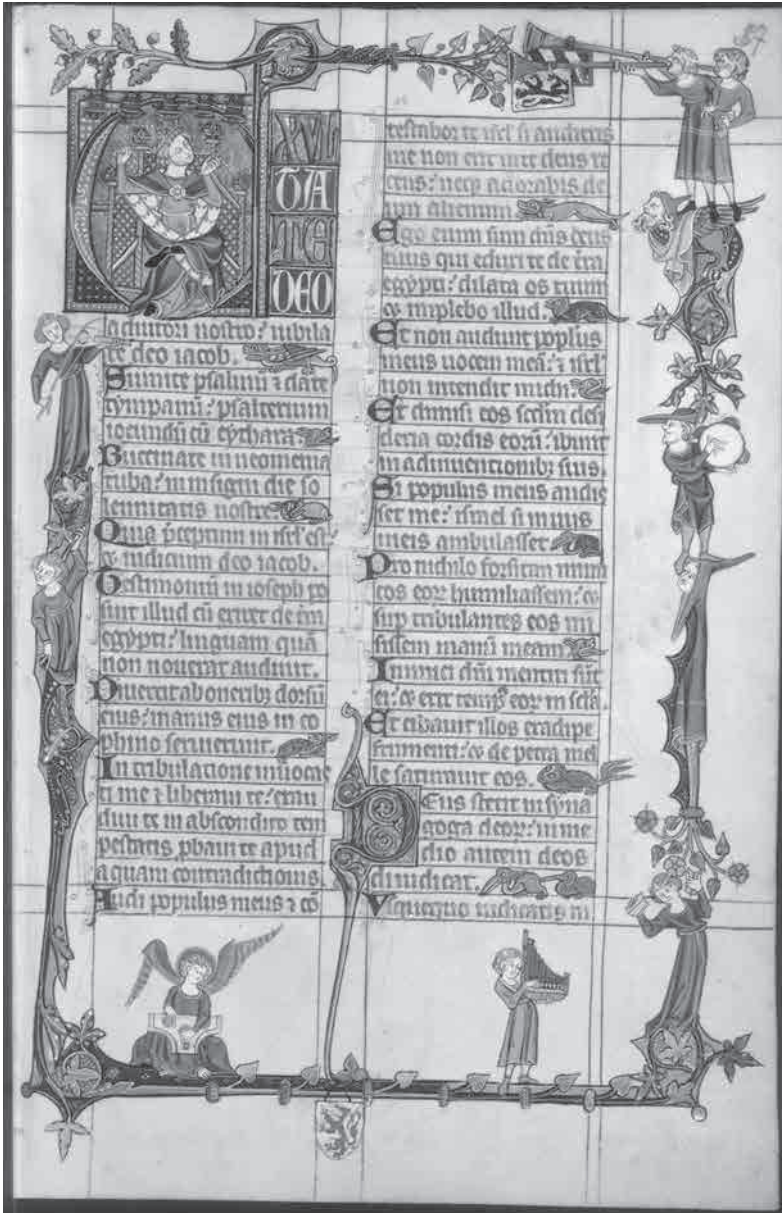 57
EXVL
TA
TE
DEO
adiutori nostro: iubila
te deo iacob.
Sumite psalmum ⁊ date
tympanū: psalterium
iocundū cū cythara.
Buccinate in neomenia
tuba: in insigni die so
lennitatis nostre.
Quia p̄ceptum in isrl̄ est:
⁊ iudicium deo iacob.
Testimoniū in ioseph po
suit illud cū exiret de t̄ra
egypti: linguam quā
non nouerat audiuit.
Diuertit ab oneribꝫ dorsū
eius: manus eius in co
phino seruierunt.
In tribulatione inuocas
ti me ⁊ liberaui te: exau
diui te in abscondito tem
pestatis, ꝓbaui te apud
aquam contradictionis.
Audi populus meus ⁊ cō
testabor te isrl̄ si audieris
me non erit in te deus re
cens: neqꝫ adorabis de
um alienum.
Ego enim sum dn̄s deus
tuus qui eduxi te de t̄ra
egypti: dilata os tuum
⁊ implebo illud.
Et non audiuit pop̄lus
meus uocem meā: ⁊ isrl̄
non intendit michi.
Et dimisi eos scd̄m desi
deria cordis eorū: ibunt
in adinuentionibꝫ suis.
Si populus meus audis
set me: israel si in uiis
meis ambulasset.
Pro nichilo forsitan inimi
cos eoꝝ humiliassem: ⁊
sup̄ tribulantes eos mi
sissem manū meam.
Inimici dn̄i mentiti sūt
ei: ⁊ erit temp̄s eoꝝ in sc̄la.
Et cibauit illos ex adipe
frumenti: ⁊ de petra mel
le saturauit eos.
Deus stetit in syna
goga deoꝝ: in me
dio autem deos
diiudicat.
Vsquequo iudicatis in